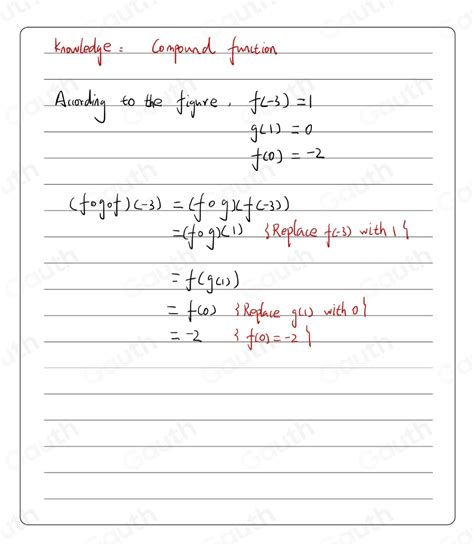 Knowledge: Compound function
According to the figure, f(-3)=1
g(1)=0
f(0)=-2
(fogof)(-3) = (fog)(f(-3))
=(fog)(1) {Replace f(-3) with 1}
= f(g(1))
= f(0) {Replace g(1) with 0}
= -2 {f(0)=-2}